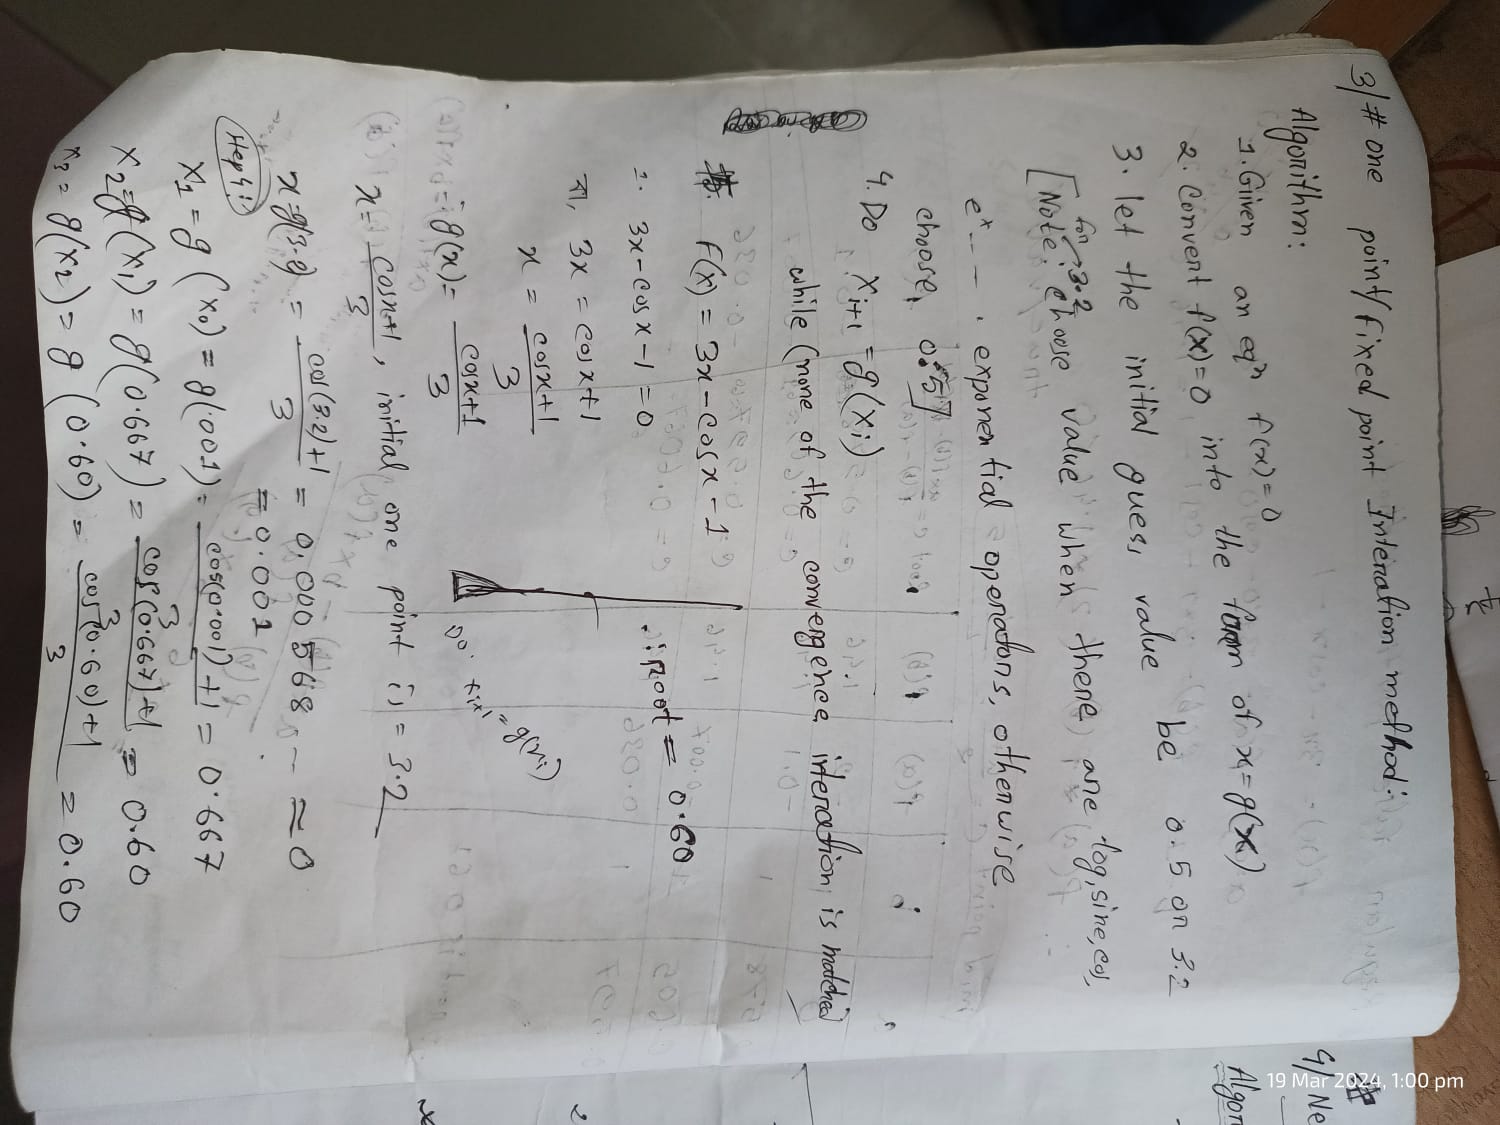 3/ # one point/fixed point Interation method:
Algorithm:
1. Given an eqn f(x)=0
2. Convert f(x)=0 into the form of x=g(x)
3. let the initial guess value be 0.5 or 3.2
[Note: choose value when there are log, sine, cos,
for 3.2
e^x -- - . exponential operators, otherwise
choose 0.5]
4. Do x_{i+1} = g(x_i)
while (none of the convergence interation is matched)
f(x) = 3x - cosx - 1
1. 3x - cos x - 1 = 0
3x = cos x + 1
x = cosx+1 / 3
∴ Root = 0.60
g(x) = cosx+1 / 3
x_{i+1} = g(x_i)
x = cosx+1 / 3 , initial one point is = 3.2
x = g(3.2) = cos(3.2)+1 / 3 = 0.000568 -- ≈ 0
= 0.001
Step 4:
x1 = g(x0) = g(.001) = cos(0.001)+1 / 3 = 0.667
x2 = g(x1) = g(0.667) = cos(0.667)+1 / 3 = 0.60
x3 = g(x2) = g(0.60) = cos(0.60)+1 / 3 = 0.60
4/ # Ne
Algor
19 Mar 2024, 1:00 pm